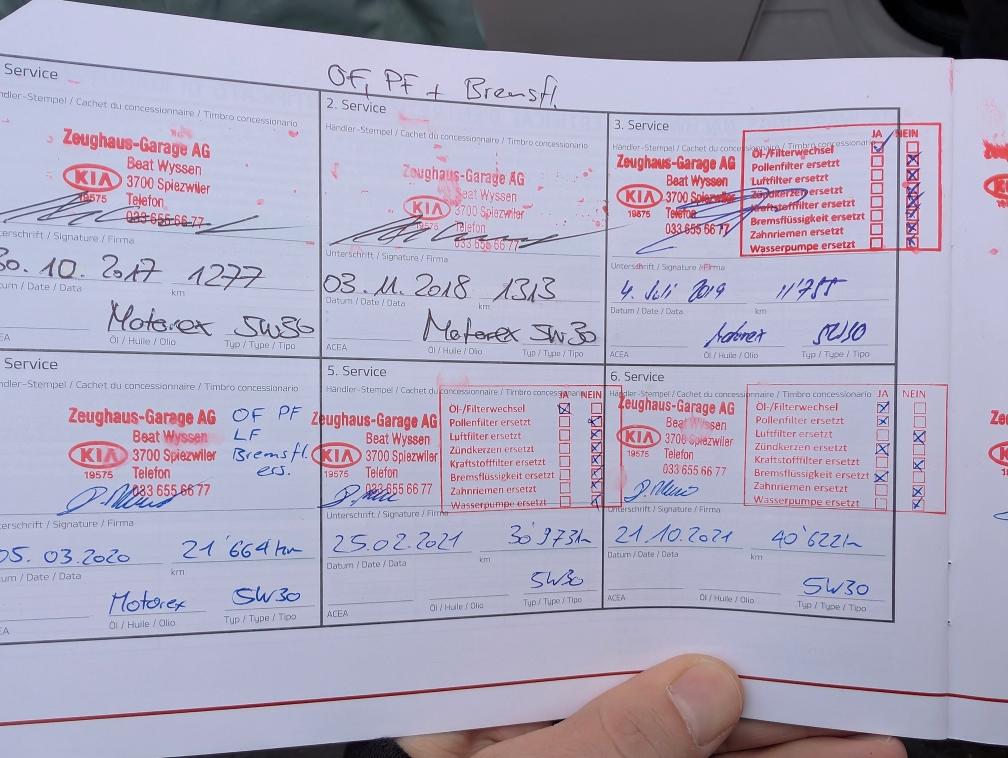 OF, PF + Bremsfl.
Service
ndler-Stempel / Cachet du concessionnaire / Timbro concessionario
Zeughaus-Garage AG
Beat Wyssen
KIA 3700 Spiezwiler
19575 Telefon
033 655 66 77
terschrift / Signature / Firma
30. 10. 2017 1277
um / Date / Data km
Motorex 5W30
EA Öl / Huile / Olio Typ / Type / Tipo
2. Service
Händler-Stempel / Cachet du concessionnaire / Timbro concessionario
Zeughaus-Garage AG
Beat Wyssen
KIA 3700 Spiezwiler
19575 Telefon
033 655 66 77
Unterschrift / Signature / Firma
03. 11. 2018 1313
Datum / Date / Data km
Motorex 5W30
ACEA Öl / Huile / Olio Typ / Type / Tipo
3. Service
Händler-Stempel / Cachet du concessionnaire / Timbro concessionario
Zeughaus-Garage AG
Beat Wyssen
KIA 3700 Spiezwiler
19575 Telefon
033 655 66 77
JA NEIN
Öl-/Filterwechsel
Pollenfilter ersetzt
Luftfilter ersetzt
Zündkerzen ersetzt
Kraftstoffilter ersetzt
Bremsflüssigkeit ersetzt
Zahnriemen ersetzt
Wasserpumpe ersetzt
Unterschrift / Signature / Firma
4. Juli 2019
Datum / Date / Data km
Motorex 5W30
ACEA Öl / Huile / Olio Typ / Type / Tipo
Service
ndler-Stempel / Cachet du concessionnaire / Timbro concessionario
Zeughaus-Garage AG
Beat Wyssen
KIA 3700 Spiezwiler
19575 Telefon
033 655 66 77
OF PF
LF
Bremsfl.
ers.
terschrift / Signature / Firma
05. 03. 2020 21'664 km
um / Date / Data km
Motorex 5W30
EA Öl / Huile / Olio Typ / Type / Tipo
5. Service
Händler-Stempel / Cachet du concessionnaire / Timbro concessionario
Zeughaus-Garage AG
Beat Wyssen
KIA 3700 Spiezwiler
19575 Telefon
033 655 66 77
JA NEIN
Öl-/Filterwechsel
Pollenfilter ersetzt
Luftfilter ersetzt
Zündkerzen ersetzt
Kraftstoffilter ersetzt
Bremsflüssigkeit ersetzt
Zahnriemen ersetzt
Wasserpumpe ersetzt
Unterschrift / Signature / Firma
25.02.2021 30'973km
Datum / Date / Data km
5W30
ACEA Öl / Huile / Olio Typ / Type / Tipo
6. Service
Händler-Stempel / Cachet du concessionnaire / Timbro concessionario
Zeughaus-Garage AG
Beat Wyssen
KIA 3700 Spiezwiler
19575 Telefon
033 655 66 77
JA NEIN
Öl-/Filterwechsel
Pollenfilter ersetzt
Luftfilter ersetzt
Zündkerzen ersetzt
Kraftstoffilter ersetzt
Bremsflüssigkeit ersetzt
Zahnriemen ersetzt
Wasserpumpe ersetzt
Unterschrift / Signature / Firma
21.10.2021 40'622km
Datum / Date / Data km
5W30
ACEA Öl / Huile / Olio Typ / Type / Tipo